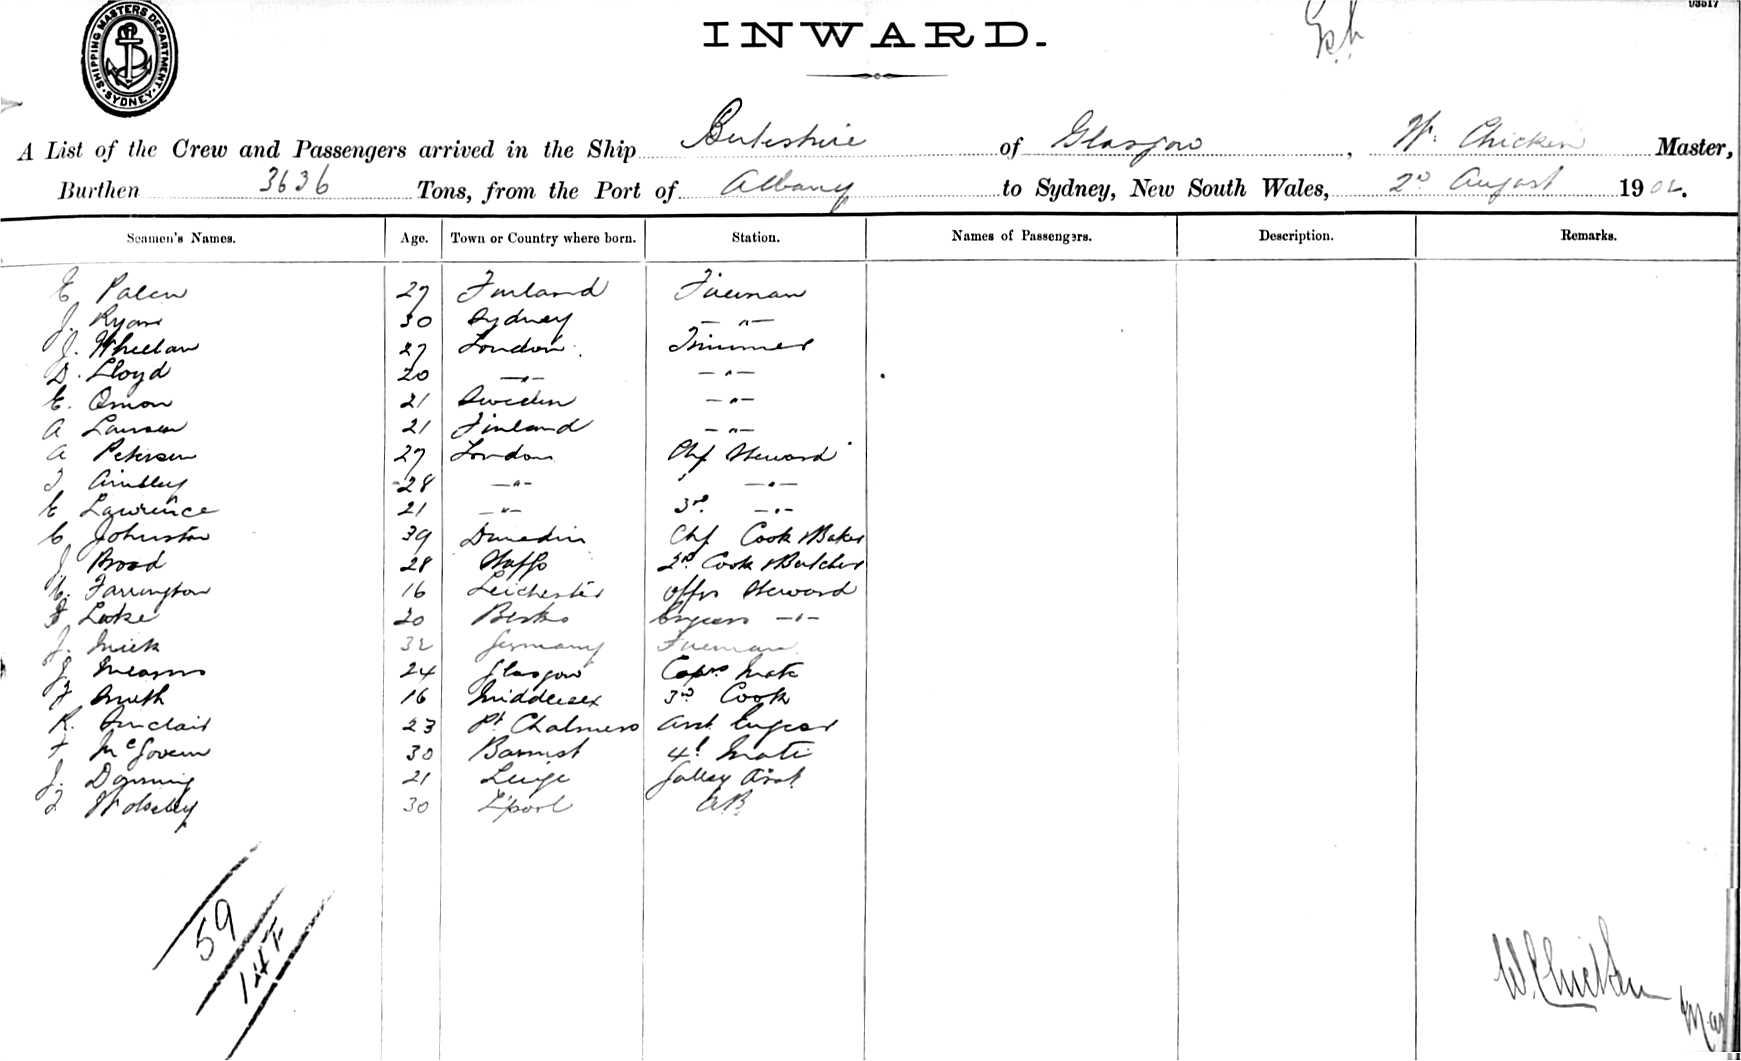 03517
SHIPPING MASTERS DEPARTMENT. SYDNEY.
INWARD.
A List of the Crew and Passengers arrived in the Ship Buteshire of Glasgow, W. Chicken Master,
Burthen 3636 Tons, from the Port of Albany to Sydney, New South Wales, 2nd August 1902.
Seamen's Names. Age. Town or Country where born. Station. Names of Passengers. Description. Remarks.
E Palen 27 Finland Fireman
J. Ryan 30 Sydney — " —
J. Wheelan 27 London Trimmer
D. Lloyd 20 — " — — " —
E. Oman 21 Sweden — " —
A Laursen 21 Finland — " —
A Petersen 27 London Chf Steward
28 — " — — " —
E Lawrence 21 — " — 3rd — " —
C Johnston 39 Dunedin Chf Cook & Baker
J Broad 28 Staffs 2nd Cook & Butcher
H. Farrington 16 Leichester Offrs Steward
F Locke 20 Berks Engeers — " —
J. Mick 32 Germany Fireman
J Mearns 24 Glasgow Capns Mate
F Smith 16 Middlesex 3rd Cook
R. Sinclair 23 Pt Chalmers Asst Engeer
F McGovern 30 4th Mate
J. 21 Galley Asst
Wolseley 30 L'pool AB
59
W. Chicken